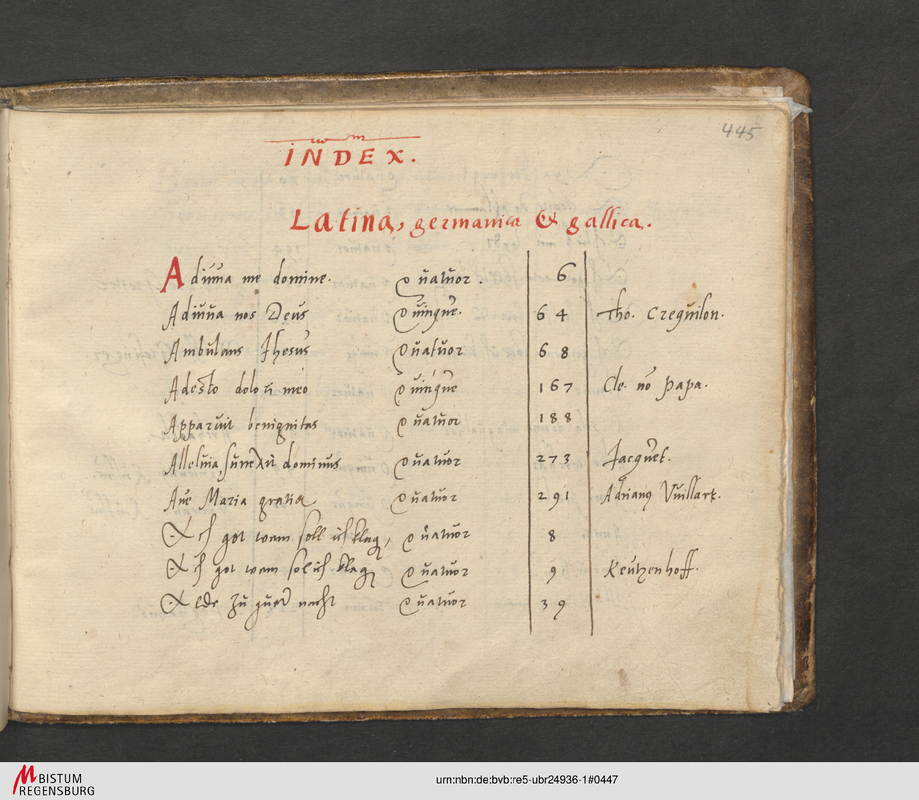 445
INDEX.
Latina, germanica & gallica.
Adiuua me domine. Quatuor. 6
Adiuua nos Deus Quinque. 64 Tho. Crequilon.
Ambulans Jhesus Quatuor 68
Adesto dolori meo Quinque 167 Cle. nō Papa.
Apparuit benignitas Quatuor 188
Alleluia, surrexit dominus Quatuor 273 Jacquet.
Aue Maria gratia Quatuor 291 Adrianus Vuillart.
Ach got wem soll ich klag, Quatuor 8
Ach got wem sol ich klag Quatuor 9 Reutzenhoff.
Alde zu guter nacht Quatuor 39
BISTUM
REGENSBURG
urn:nbn:de:bvb:re5-ubr24936-1#0447